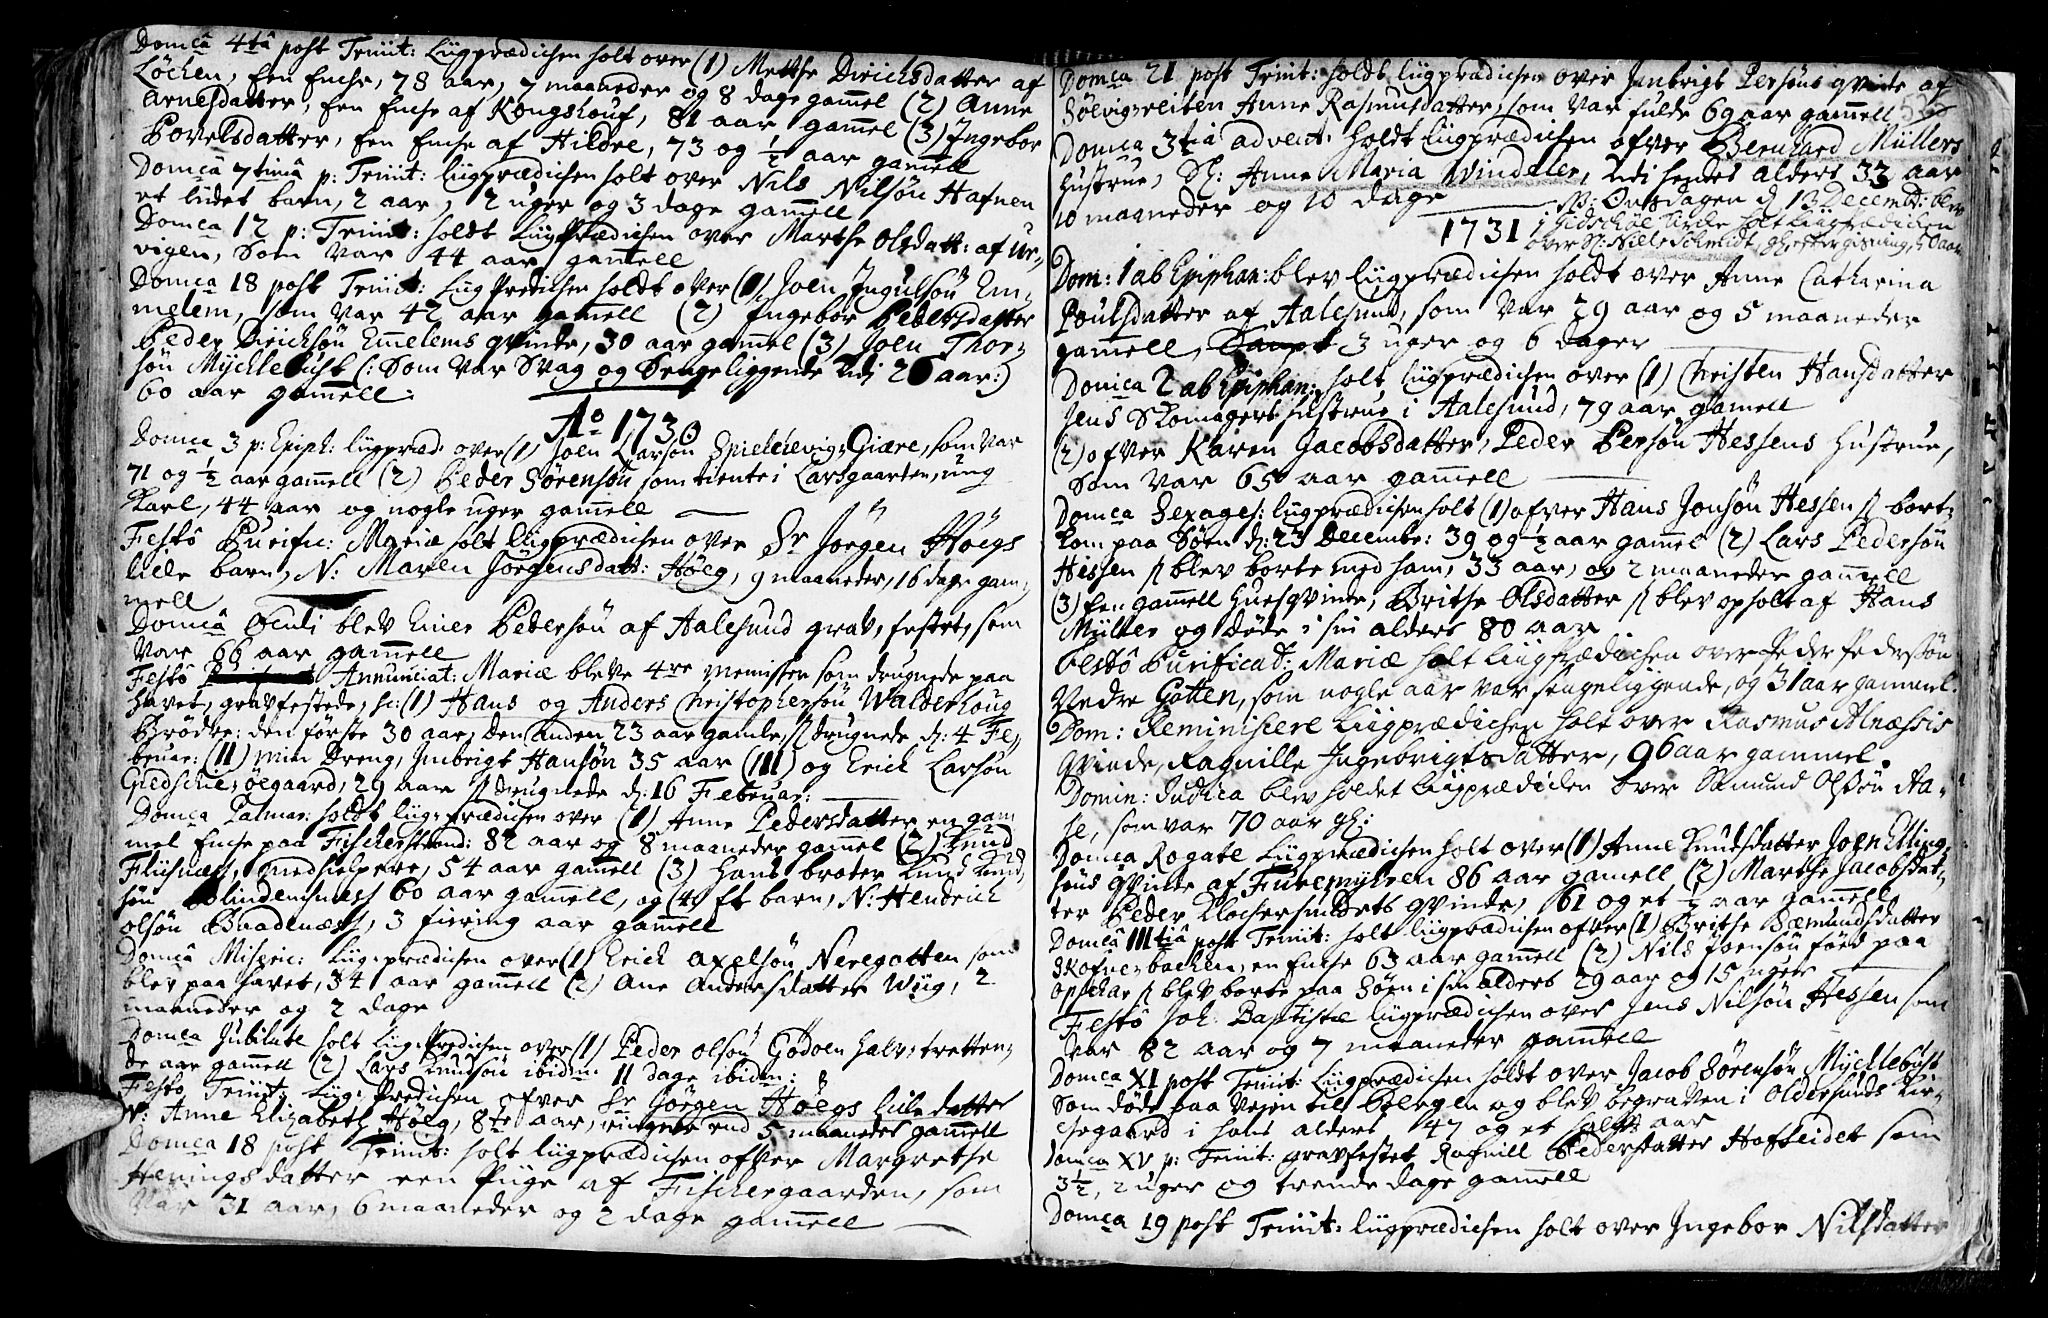 Domca 4ta post Trinit: Liigprædichen holt over (1) Mette Dirichsdatter af
Löchen, Een Enche, 78 aar, 7 maaneder og 8 dage gam̄el (2) Anne
Arnesdatter, Een Enche af Kongshouf, 81 aar gam̄el (3) Ingebor
Povelsdatter, Een Enche af Hildre, 73 og ½ aar gam̄ell
Domca 7tima p: Trinit: liigprædichen holt over Nils Nilsön Hafnen
et lidet barn, 2 aar, 2 uger og 3 dage gam̄ell
Domca 12 p: Trinit: holdt LiigPrædichen over Marthe Olsdatt: af Ur-
vigen, Som var 44 aar gam̄ell
Domca 18 post Trinit: Liig Predichen holdt over (1) Joen Ingulsön Em-
melem, som var 42 aar gam̄ell (2) Ingebor Pedersdatter
Peder Dirichsön Em̄elems qvinde, 30 aar gam̄el (3) Joen Thor-
sön Mycklebust (: Som var Svag og Sengeliggende udi 26 aar:)
60 aar gam̄ell:
Ao 1730
Domca 3 p: Epiph: liigpræd: over (1) Joen Larsön Spielchevig-Giære, som var
71 og ½ aar gam̄ell (2) Peder Sörensön som tiente i Larsgaarten, ung
Karl, 44 aar og nogle uger gam̄ell
Festô Purific: Mariæ holt Liigprædichen over Sr Jörgen Höegs
lille barn, N: Maren Jörgensdatt: Höeg, 9 maaneder, 16 dage gam-
mell
Domca Oculi blev Einer Pedersön af Aalesund grav-festet, som
var 66 aar gam̄ell
Festô Annunciat: Mariæ bleve 4re Menischer som drugnede paa
havet, gravfestede, sc: (1) Hans og Anders Christophersön Walderhoug
Brödre: den förste 30 aar, den anden 23 aar gamle, s/ drugnede d: 4 Fe-
bruar: (II) min Dreng, Imbrigt Hansön 35 aar (III) og Erick Larsön
Giedsche-öegaard, 29 aar s/ drugnede d: 16 Februar:
Domca Palmar: holdt liig-prædichen over (1) Anne Pedersdatter en gam-
mel Enche paa Fischerstrand: 82 aar og 8 maaneder gam̄el (2) Knud
Fliisnæss, medhielpere, 54 aar gam̄ell (3) hans broder Knud Knud-
sön Blindemsnæss 60 aar gam̄ell, og (4) Et barn, N: Hendrich
olsön Baadenæss, 3 fiering aar gam̄ell
Domca Miseric: Liig-prædichen over (1) Erick Axelsön Neregotten som
blev paa havet, 34 aar gam̄ell (2) Ane Andersdatter Wiig, 2
maaneder og 2 dage
Domca Jubilate holt Liig-Predichen over (1) Peder Olsön Godöen halv-tretten-
de aar gam̄ell (2) Lars Knudsön ibidm: 11 dage ibidm:
Festo Trinit: Liig-Predichen ofver Sr Jörgen Höegs liile datter
N: Anne Elizabeth Höeg, 8te aar, ringere end 5 maaneder gam̄ell
Domca 18 post Trinit: holt liigprædichen ofver Margrethe
Heningsdatter een Piige af Fischergaarden, som
Var 31 aar, 6 maaneder og 2 dage gam̄ell
Domca 21 post Trinit: holdt liigprædichen over Jnbrigt Persöns qvinde af
Sölvigs-reiten Anne Rasmusdatter, som var fulde 69 aar gam̄ell
Domca 3tia advent: holdt liigprædichen ofver Bernhard Müllers
Hustrue, Sl: Anne Maria Windeler, udi hendes alders 33 aar
10 maaneder og 10 dage
NB: Onsdagen d 13 Decembr: blev
i Gidschöe Kirche holt Liigprædichen
over Sl: Niels Schmidt, gl: efter gisning, 50 aar
1731
Dom: 1 ab Epiphan: blev liigprædichen holdt over Anne Catharina
Poulsdatter af Aalesund, som var 29 aar og 5 maaneder
gam̄ell, 3 uger og 6 dager
Domca 2 ab Epiphan: holt liigprædichen over (1) Christen Hansdatter
Jens Skomagers hustrue i Aalesund, 79 aar gam̄ell
(2) ofver Karen Jacobsdatter, Peder Persön Hessens Hustrue,
Som var 65 aar gam̄ell
Domca Sexages: liigprædichen holt (1) ofver Hans Jonsön Hessen s/ bort-
kom paa Söen d: 23 Decembr: 39 og ½ aar gam̄el (2) Lars Pedersön
Hessen s/ blev borte med ham, 33 aar, og 2 maaneder gam̄ell
(3) Een gam̄ell huusqvinde, Brithe Olsdatter s/ blev opholt af Hans
Müller og döde i sin alders 80 aar
Festô Purificat: Mariæ holt Liigprædichen over Peder Pedersön
Nedre Gotten, som nogle aar var sengeliggende, og 31 aar gammel.
Dom: Reminiscere Liigprædichen holt over Rasmus Alnæssis
Qvinde, Ragnille Ingebrigtsdatter, 96 aar gammel.
Domin: Judica blev holdet Liigprædichen over Amund Olssön Aa-
se, som var 70 aar gl:
Domca Rogate Liigprædichen holt over (1) Anne Knudsdatter Joen Elling-
sens qvinde af Furemyhren 86 aar gam̄ell (2) Marthe Jacobsdat-
ter Peder Klochersundets qvinde, 61 og et ½ aar gam̄ell
Domca IIItia post Trinit: holt liigprædichen ofver (1) Brithe Sæmundsdatter
Skofve-bachen, en Enche 63 aar gam̄ell (2) Nils Joensön föed paa
Opschar s/ blev borte paa Söen i sin alders 29 aar og 15 uger
Festô Joh: Baptistæ liigprædichen over Jens Nilsön Hessen som
var 82 aar og 7 maaneder gam̄ell
Domca XI post Trinit: Liigprædichen holdt over Jacob Sörensön Mycklebust
Som döde paa Veien til Bergen og blev begraven i Oldersunds Kir-
chegaard i hans alders 47 og et halft aar
Domca XV p: Trinit: gravfestet Ragnill Pedersdatter Hofseidet som
3½, 2 uger og trende dage gam̄ell
Domca 19 post Trinit: liigprædichen holt over Ingebor Nilsdatter